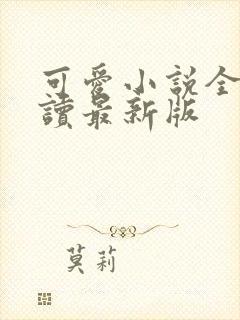 可愛小說全
讀最新版
莫莉